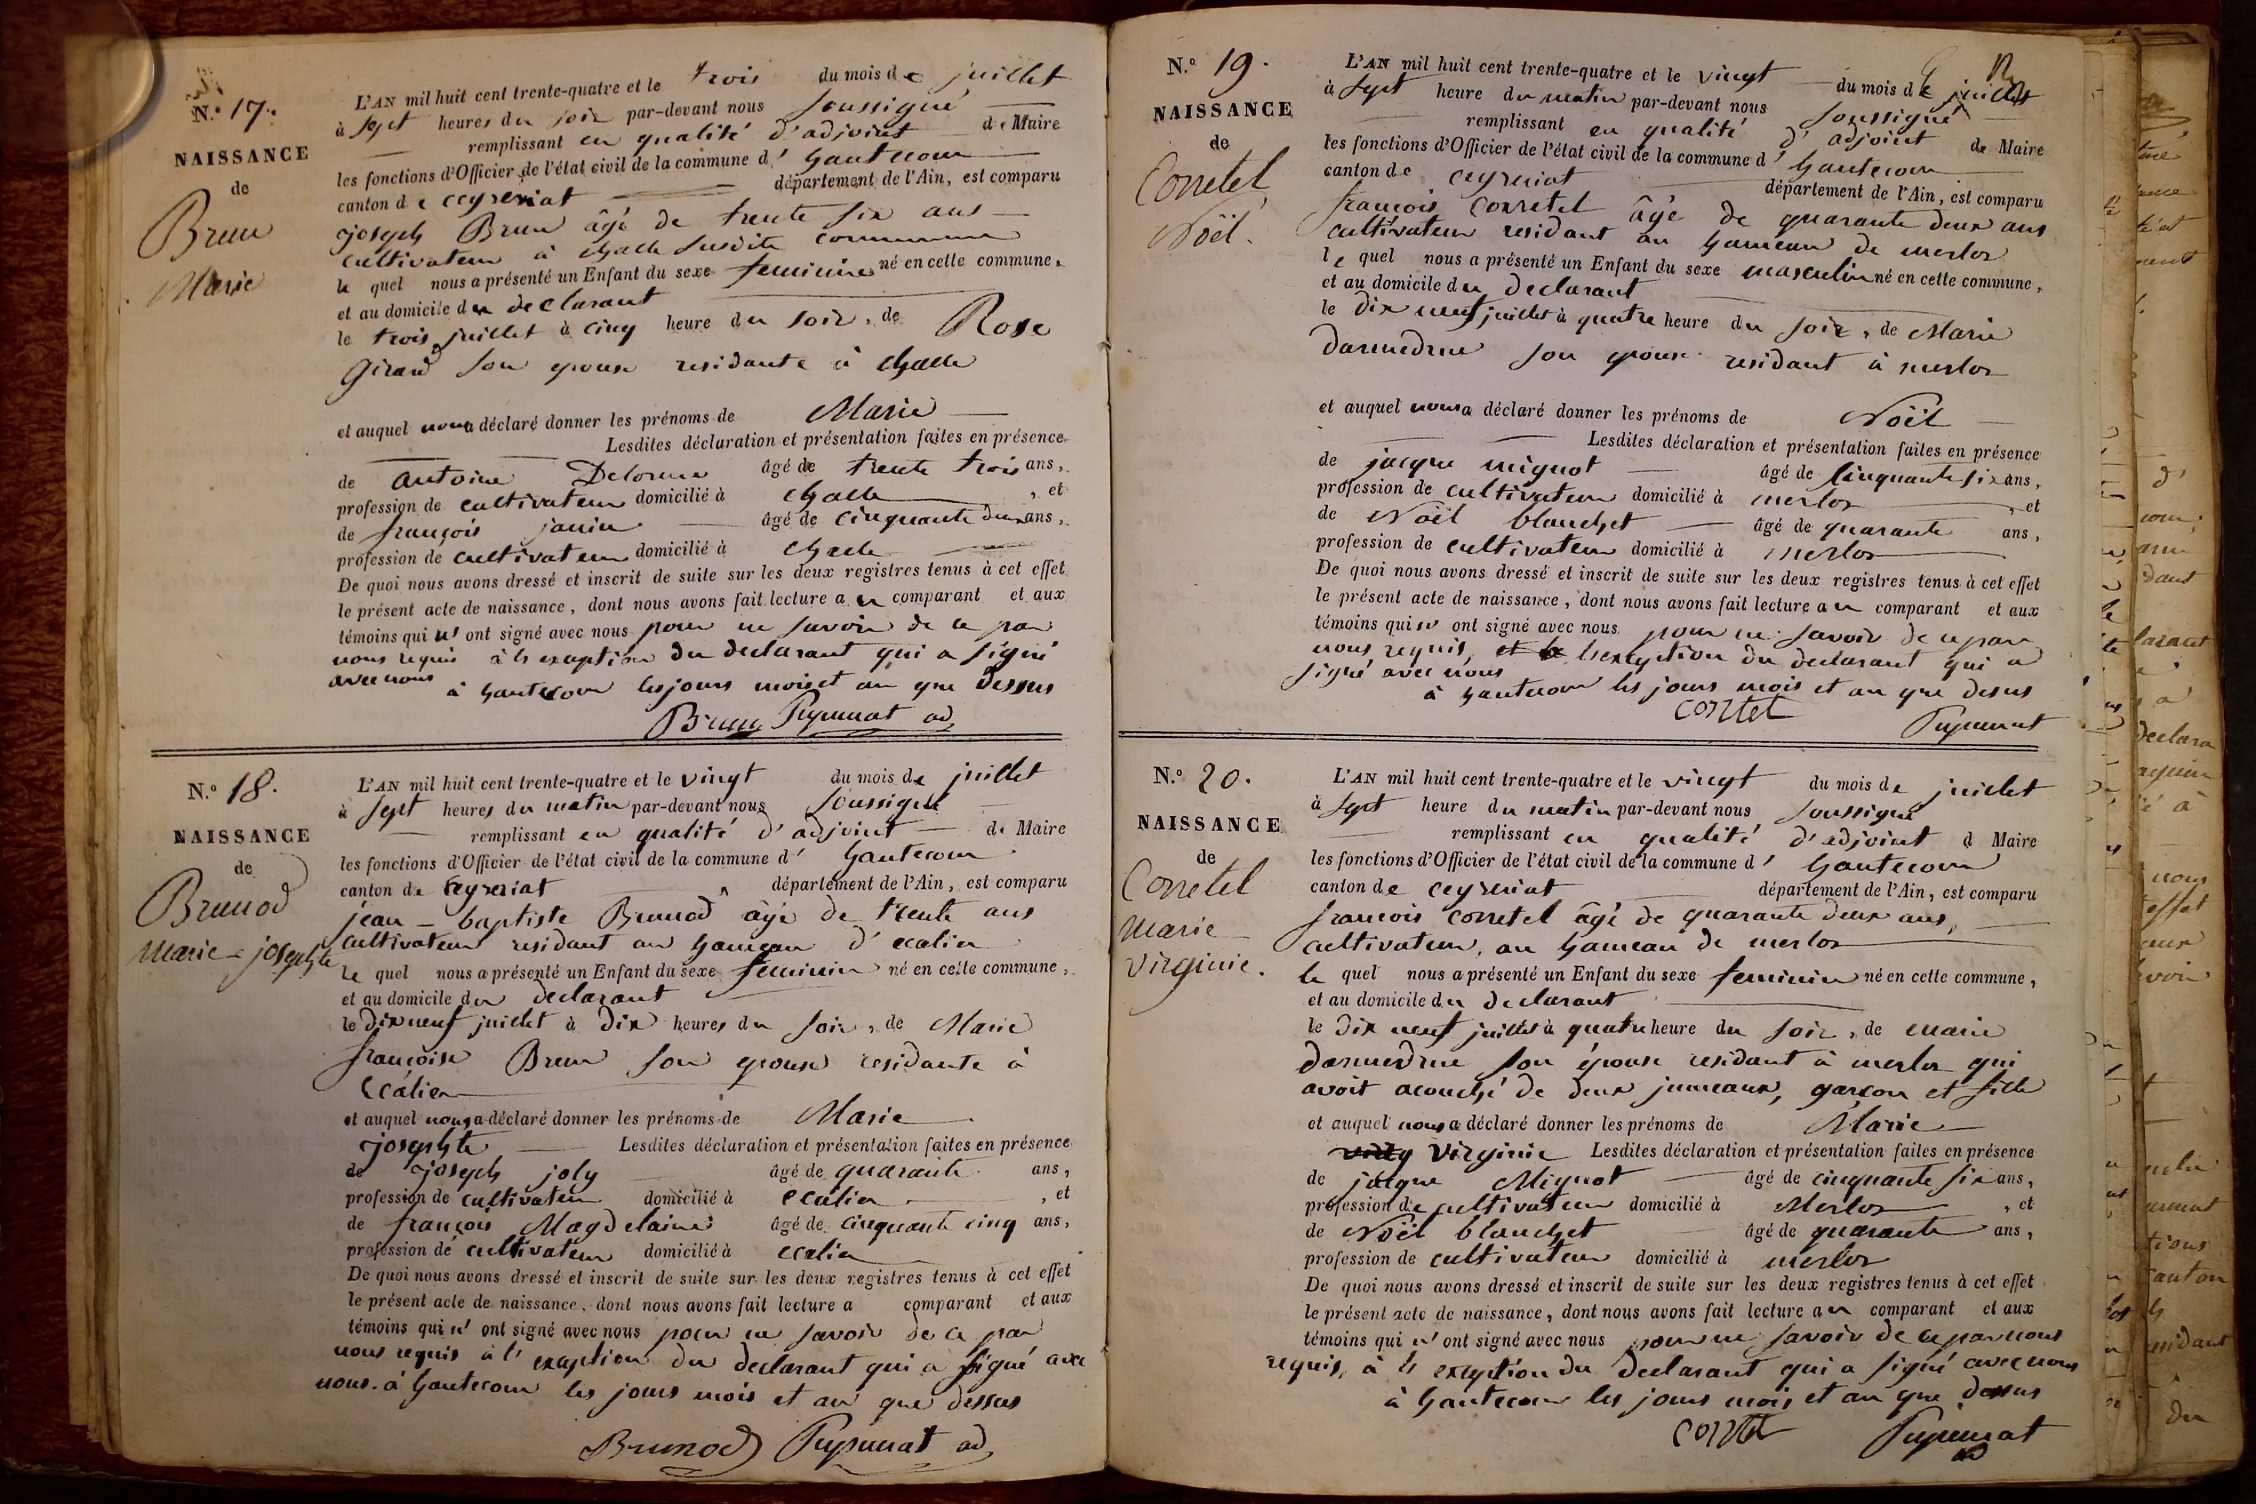 N.º 17.
NAISSANCE
de
Brun
Marie
L'AN mil huit cent trente-quatre et le trois du mois de juillet
à sept heures du soir par-devant nous soussigné
remplissant en qualité d'adjoint de Maire
les fonctions d'Officier de l'état civil de la commune d' hautecour
canton de ceyzeriat département de l'Ain, est comparu
joseph Brun âgé de trente six ans
cultivateur à challe susdite commune
le quel nous a présenté un Enfant du sexe feminine né en cette commune,
et au domicile du declarant
le trois juillet à cinq heure du soir, de Rose
girard son epouse residante à challe
et auquel nous a déclaré donner les prénoms de Marie
Lesdites déclaration et présentation faites en présence
de antoine Delorme âgé de trente trois ans,
profession de cultivateur domicilié à challe, et
de françois janin âgé de cinquante deux ans,
profession de cultivateur domicilié à challe
De quoi nous avons dressé et inscrit de suite sur les deux registres tenus à cet effet
le présent acte de naissance, dont nous avons fait lecture au comparant et aux
témoins qui n' ont signé avec nous pour ne savoir de ce par
nous requis à l'exaption du declarant qui a signé
avec nous à hautecour les jours mois et an que dessus
Brun ad
N.º 18.
NAISSANCE
de
Brunod
Marie-josephte
L'AN mil huit cent trente-quatre et le vingt du mois de juillet
à sept heures du matin par-devant nous soussigné
remplissant en qualité d'adjoint de Maire
les fonctions d'Officier de l'état civil de la commune d' hautecour
canton de Ceyzeriat département de l'Ain, est comparu
jean-baptiste Brunod âgé de trente ans
cultivateur residant au hameau d' ecalier
le quel nous a présenté un Enfant du sexe feminin né en cette commune,
et au domicile du declarant
le dix neuf juillet à dix heures du soir, de Marie
françoise Brun son epouse residante à
Ecalier
et auquel nous a déclaré donner les prénoms de Marie
josephte Lesdites déclaration et présentation faites en présence
de joseph joly âgé de quarante ans,
profession de cultivateur domicilié à ecalier, et
de françois Magdelaine âgé de cinquante cinq ans,
profession de cultivateur domicilié à ecalier
De quoi nous avons dressé et inscrit de suite sur les deux registres tenus à cet effet
le présent acte de naissance, dont nous avons fait lecture a comparant et aux
témoins qui n' ont signé avec nous pour ne savoir de ce par
nous requis à l'exaption du declarant qui a signé avec
nous. à hautecour les jours mois et an que dessus
Brunod ad
N.º 19.
NAISSANCE
de
Corretel
Noël.
L'AN mil huit cent trente-quatre et le vingt du mois de juillet
à sept heure du matin par-devant nous soussigné
remplissant en qualité d' adjoint de Maire
les fonctions d'Officier de l'état civil de la commune d' hautecour
canton de ceyzeriat département de l'Ain, est comparu
françois Corretel âgé de quarante deux ans
cultivateur residant au hameau de merlos
le quel nous a présenté un Enfant du sexe masculin né en cette commune,
et au domicile du declarant
le dix neuf juillet à quatre heure du soir, de Marie
son epouse residant à merlos
et auquel nous a déclaré donner les prénoms de Noël
Lesdites déclaration et présentation faites en présence
de jacque mignot âgé de cinquante six ans,
profession de cultivateur domicilié à merlos, et
de Noël blanchet âgé de quarante ans,
profession de cultivateur domicilié à merlos
De quoi nous avons dressé et inscrit de suite sur les deux registres tenus à cet effet
le présent acte de naissance, dont nous avons fait lecture au comparant et aux
témoins qui n' ont signé avec nous pour ne savoir de ce par
nous requis, l'exception du declarant qui a
signé avec nous
à hautecour les jours mois et an que desus
corrtet
N.º 20.
NAISSANCE
de
Corretel
marie
virginie.
L'AN mil huit cent trente-quatre et le vingt du mois de juillet
à sept heure du matin par-devant nous soussigné
remplissant en qualité d'adjoint d Maire
les fonctions d'Officier de l'état civil de la commune d' hautecour
canton de ceyzeriat département de l'Ain, est comparu
françois corretel âgé de quarante deux ans,
cultivateur, au hameau de merlos
le quel nous a présenté un Enfant du sexe feminin né en cette commune,
et au domicile du declarant
le dix neuf juillet à quatre heure du soir, de marie
son épouse residant à merlos qui
avoit acouché de deux jumeaux, garçon et fille
et auquel nous a déclaré donner les prénoms de Marie
virginie Lesdites déclaration et présentation faites en présence
de jacque Mignot âgé de cinquante six ans,
profession de cultivateur domicilié à Merlos, et
de Noël blanchet âgé de quarante ans,
profession de cultivateur domicilié à merlos
De quoi nous avons dressé et inscrit de suite sur les deux registres tenus à cet effet
le présent acte de naissance, dont nous avons fait lecture au comparant et aux
témoins qui n' ont signé avec nous pour ne savoir de ce par nous
requis, à l'exception du declarant qui a signé avec nous
à hautecour les jours mois et an que dessus
corrtet
ad